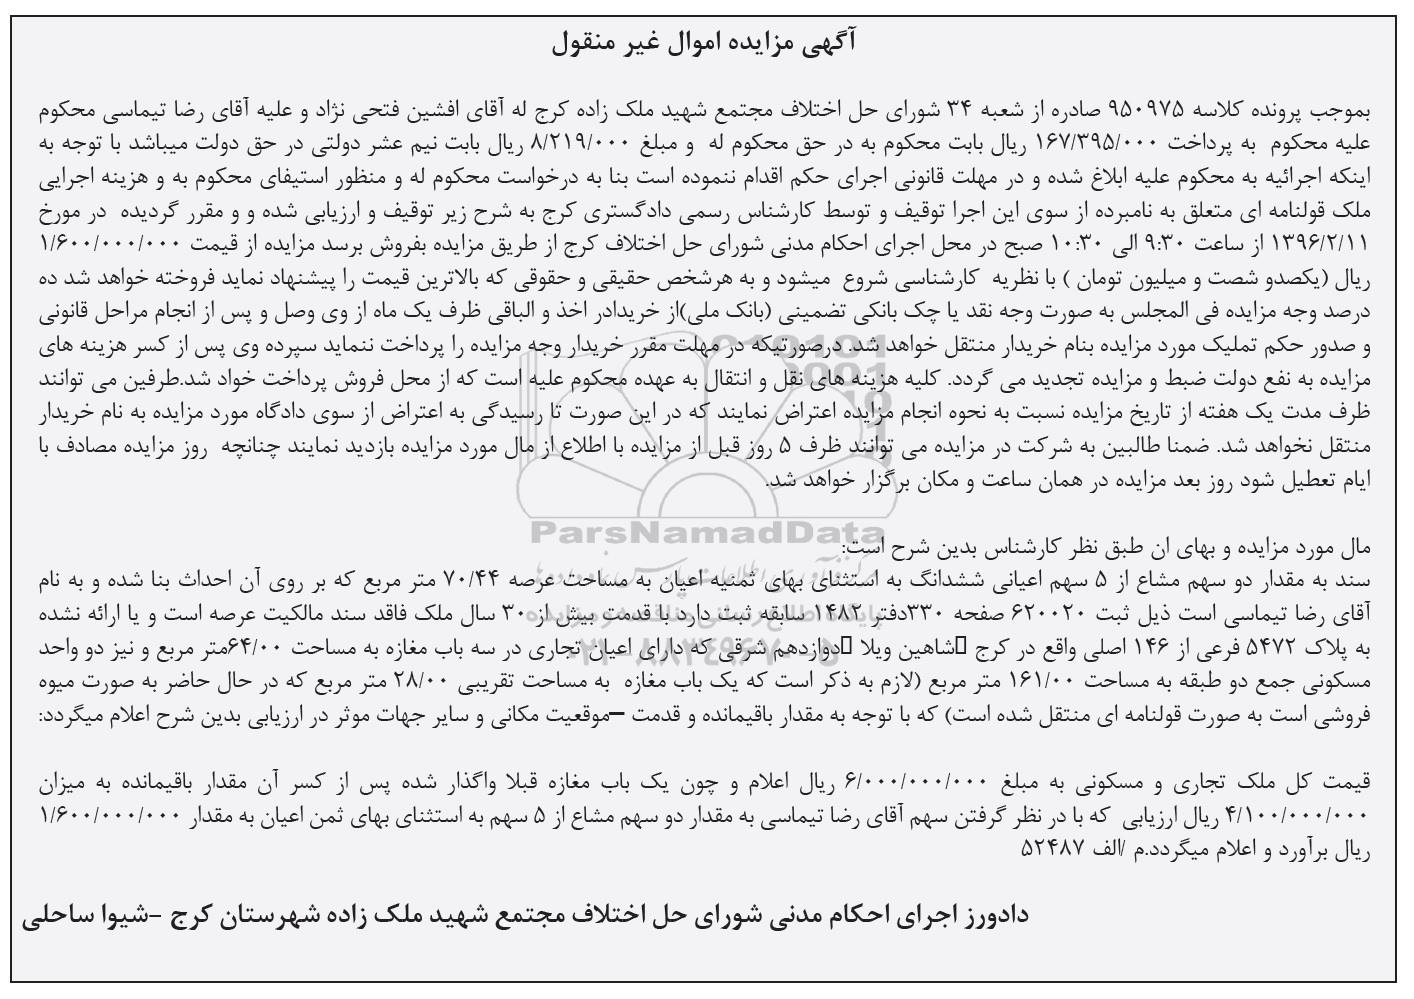 آگهی مزایده اموال غیر منقول
بموجب پرونده کلاسه ۹۵۰۹۷۵ صادره از شعبه ۳۴ شورای حل اختلاف مجتمع شهید ملک زاده کرج له آقای افشین فتحی نژاد و علیه آقای رضا تیماسی محکوم
علیه محکوم به پرداخت ۱۶۷/۳۹۵/۰۰۰ ریال بابت محکوم به در حق محکوم له و مبلغ ۸/۲۱۹/۰۰۰ ریال بابت نیم عشر دولتی در حق دولت میباشد با توجه به
اینکه اجرائیه به محکوم علیه ابلاغ شده و در مهلت قانونی اجرای حکم اقدام ننموده است بنا به درخواست محکوم له و منظور استیفای محکوم به و هزینه اجرایی
ملک قولنامه ای متعلق به نامبرده از سوی این اجرا توقیف و توسط کارشناس رسمی دادگستری کرج به شرح زیر توقیف و ارزیابی شده و و مقرر گردیده در مورخ
۱۳۹۶/۲/۱۱ از ساعت ۹:۳۰ الی ۱۰:۳۰ صبح در محل اجرای احکام مدنی شورای حل اختلاف کرج از طریق مزایده بفروش برسد مزایده از قیمت ۱/۶۰۰/۰۰۰/۰۰۰
ریال (یکصدو شصت و میلیون تومان ) با نظریه کارشناسی شروع میشود و به هرشخص حقیقی و حقوقی که بالاترین قیمت را پیشنهاد نماید فروخته خواهد شد ده
درصد وجه مزایده فی المجلس به صورت وجه نقد یا چک بانکی تضمینی (بانک ملی)از خریدادر اخذ و الباقی ظرف یک ماه از وی وصل و پس از انجام مراحل قانونی
و صدور حکم تملیک مورد مزایده بنام خریدار منتقل خواهد شد. درصورتیکه در مهلت مقرر خریدار وجه مزایده را پرداخت ننماید سپرده وی پس از کسر هزینه های
مزایده به نفع دولت ضبط و مزایده تجدید می گردد. کلیه هزینه های نقل و انتقال به عهده محکوم علیه است که از محل فروش پرداخت خواد شد.طرفین می توانند
ظرف مدت یک هفته از تاریخ مزایده نسبت به نحوه انجام مزایده اعتراض نمایند که در این صورت تا رسیدگی به اعتراض از سوی دادگاه مورد مزایده به نام خریدار
منتقل نخواهد شد. ضمنا طالبین به شرکت در مزایده می توانند ظرف ۵ روز قبل از مزایده با اطلاع از مال مورد مزایده بازدید نمایند چنانچه روز مزایده مصادف با
ایام تعطیل شود روز بعد مزایده در همان ساعت و مکان برگزار خواهد شد.
ParsNamadData
مال مورد مزایده و بهای ان طبق نظر کارشناس بدین شرح است:
سند به مقدار دو سهم مشاع از ۵ سهم اعیانی ششدانگ به استثنای بهای ثمنیه اعیان به مساحت عرصه ۷۰/۴۴ متر مربع که بر روی آن احداث بنا شده و به نام
آقای رضا تیماسی است ذیل ثبت ۶۲۰۰۲۰ صفحه ۳۳۰دفتر ۱۴۸۲ سابقه ثبت دارد با قدمت بیش از ۳۰ سال ملک فاقد سند مالکیت عرصه است و یا ارائه نشده
به پلاک ۵۴۷۲ فرعی از ۱۴۶ اصلی واقع در کرج شاهین ویلا دوازدهم شرقی که دارای اعیان تجاری در سه باب مغازه به مساحت ۶۴/۰۰متر مربع و نیز دو واحد
مسکونی جمع دو طبقه به مساحت ۱۶۱/۰۰ متر مربع (لازم به ذکر است که یک باب مغازه به مساحت تقریبی ۲۸/۰۰ متر مربع که در حال حاضر به صورت میوه
فروشی است به صورت قولنامه ای منتقل شده است) که با توجه به مقدار باقیمانده و قدمت –موقعیت مکانی و سایر جهات موثر در ارزیابی بدین شرح اعلام میگردد:
قیمت کل ملک تجاری و مسکونی به مبلغ ۶/۰۰۰/۰۰۰/۰۰۰ ریال اعلام و چون یک باب مغازه قبلا واگذار شده پس از کسر آن مقدار باقیمانده به میزان
۴/۱۰۰/۰۰۰/۰۰۰ ریال ارزیابی که با در نظر گرفتن سهم آقای رضا تیماسی به مقدار دو سهم مشاع از ۵ سهم به استثنای بهای ثمن اعیان به مقدار ۱/۶۰۰/۰۰۰/۰۰۰
ریال برآورد و اعلام میگردد.م /الف ۵۲۴۸۷
دادورز اجرای احکام مدنی شورای حل اختلاف مجتمع شهید ملک زاده شهرستان کرج –شیوا ساحلی